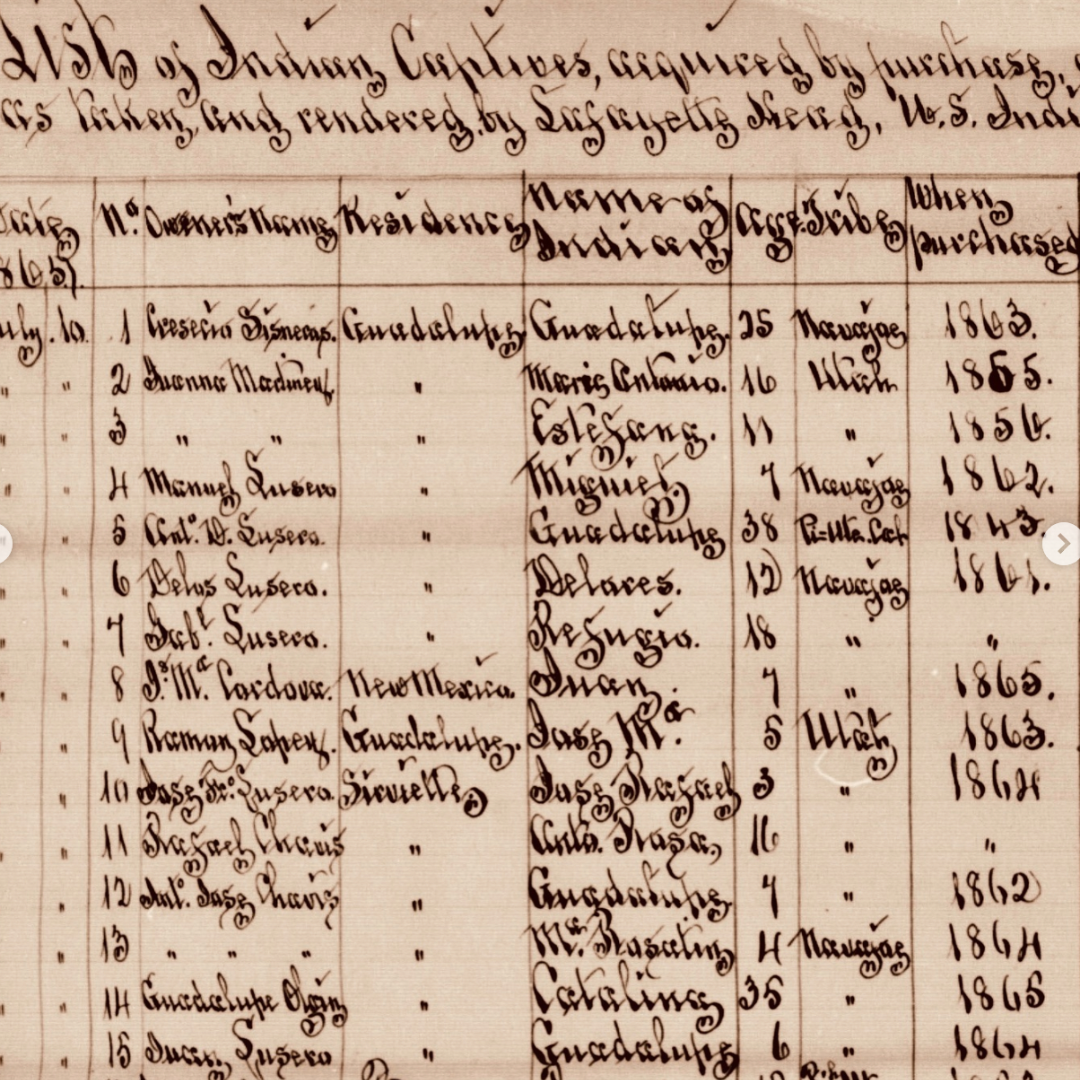 LIST of Indian Captives, acquired by purchase,
as taken, and rendered, by Lafayette Head, U.S. Indi
Date 1865. Nº. Owner's Name Residence Name of Indian Age. Tribe When purchased
July. 10. 1 Guadalupe Guadalupe. 25 Navajoe 1863.
" " 2 Juanna " Maria Antonio. 16 Utah 1855.
" " 3 " " " Estefana. 11 " 1856.
" " 4 Manuel Lusero " Miguiel. 7 Navajoe 1862.
" " 5 Antº. D. Lusero. " Guadalupe 38 1843.
" 6 Lusero. " Delores. 12 Navajoe 1861.
" " 7 Gabl. Lusero. " Refugio. 18 " "
" " 8 Js. Ma. Cordova. New Mexico. Juan. 7 " 1865.
" " 9 Ramon Lopez. Guadalupe. Jose Ma. 5 Utah 1863.
" 10 Jose Frº. Lusero. Jose Rafael 3 " 1864
" " 11 Rafael Chavis " Antº. Rosa, 16 " "
" 12 Antº. Jose Chavis " Guadalupe 7 " 1862
" 13 " " " " Ma. Rosalin 4 Navajoe 1864
" " 14 Guadalupe Olgin " Catalina 35 " 1865
" " 15 Juan Lusero " Guadalupe 6 " 1864